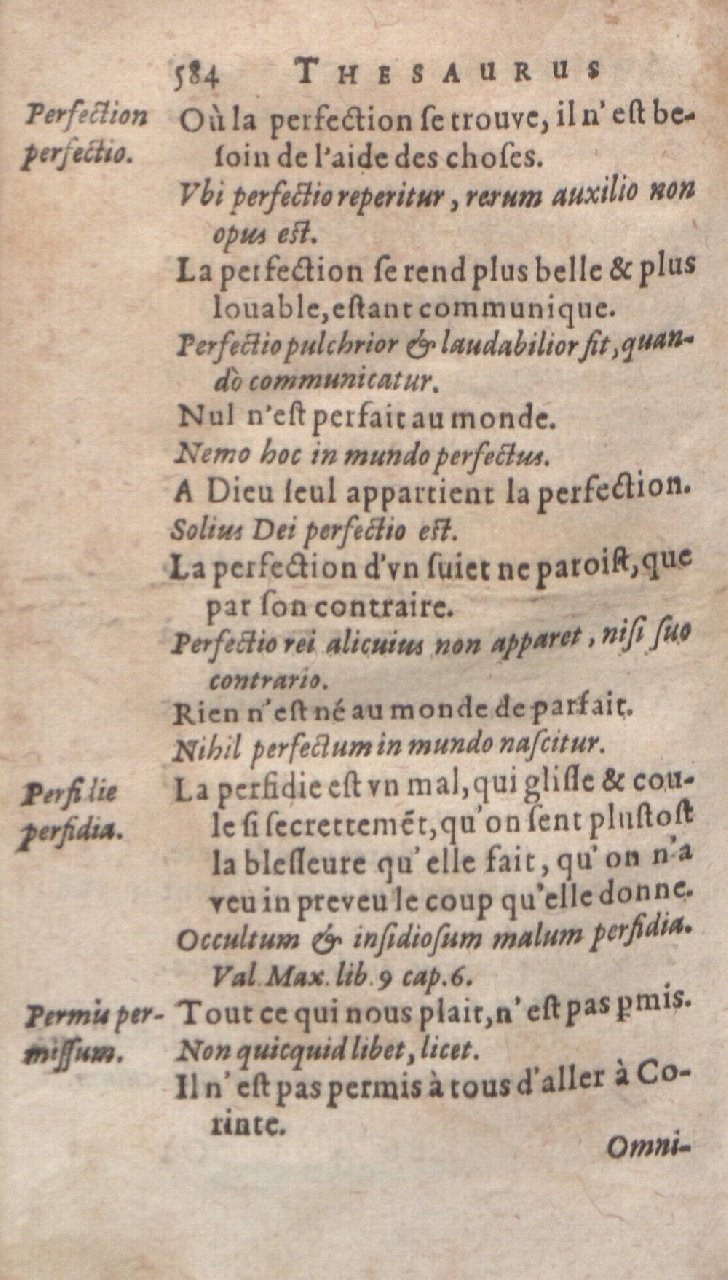 584 THESAURUS
Perfection
perfectio.
Où la perfection ſe trouve, il n'eſt be-
ſoin de l'aide des choſes.
Vbi perfectio reperitur, rerum auxilio non
opus eſt.
La perfection ſe rend plus belle & plus
louable, eſtant communique.
Perfectio pulchrior & laudabilior fit, quan-
dò communicatur.
Nul n'eſt perfait au monde.
Nemo hoc in mundo perfectus.
A Dieu ſeul appartient la perfection.
Solius Dei perfectio eſt.
La perfection d'vn ſuiet ne paroiſt, que
par ſon contraire.
Perfectio rei alicuius non apparet, niſi ſuo
contrario.
Rien n'eſt né au monde de parfait.
Nihil perfectum in mundo naſcitur.
Perfidie
perfidia.
La perfidie eſt vn mal, qui gliſſe & cou-
le ſi ſecrettemẽt, qu'on ſent pluſtoſt
la bleſſeure qu'elle fait, qu'on n'a
veu in preveu le coup qu'elle donne.
Occultum & inſidioſum malum perfidia.
Val Max. lib. 9 cap. 6.
Permis per-
miſſum.
Tout ce qui nous plait, n'eſt pas ꝑmis.
Non quicquid libet, licet.
Il n'eſt pas permis à tous d'aller à Co-
rinte.
Omni-